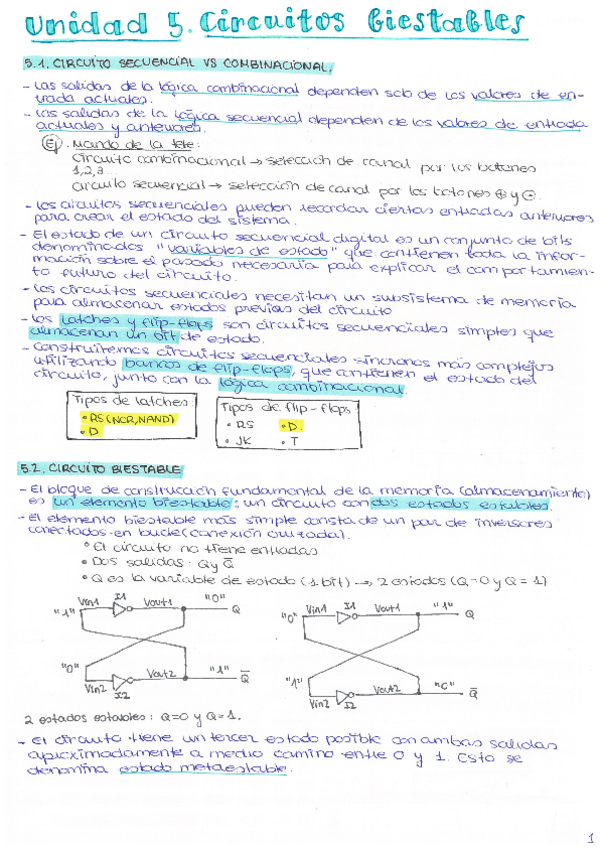 Unidad 5. Circuitos biestables
5.1. CIRCUITO SECUENCIAL VS COMBINACIONAL.
- Las salidas de la lógica combinacional dependen solo de los valores de en-
trada actuales.
- Las salidas de la lógica secuencial dependen de los valores de entrada
actuales y anteriores.
Ej. Mando de la tele:
Circuito combinacional → selección de canal por los botones
1,2,3...
Circuito secuencial → selección de canal por los botones ⊕ y ⊖.
- Los circuitos secuenciales pueden recordar ciertas entradas anteriores
para crear el estado del sistema.
- El estado de un circuito secuencial digital es un conjunto de bits
denominados "variables de estado" que contienen toda la infor-
mación sobre el pasado necesaria para explicar el comportamien-
to futuro del circuito.
- Los circuitos secuenciales necesitan un subsistema de memoria
para almacenar estados previos del circuito
- Los latches y flip-flops son circuitos secuenciales simples que
almacenan un bit de estado.
- Construiremos circuitos secuenciales síncronos más complejos
utilizando bancos de flip-flops, que contienen el estado del
circuito, junto con la lógica combinacional.
Tipos de latches:
• RS (NOR, NAND)
• D
Tipos de flip-flops
• RS • D
• JK • T
5.2. CIRCUITO BIESTABLE
- El bloque de construcción fundamental de la memoria (almacenamiento)
es un elemento biestable: un circuito con dos estados estables.
- El elemento biestable más simple consta de un par de inversores
conectados en bucle (conexión cruzada).
• El circuito no tiene entradas
• Dos salidas: Q y Q̅
• Q es la variable de estado (1 bit) → 2 estados (Q=0 y Q=1)
Vin1 I1 Vout1 "0" Q
"1"
"0"
Vin2 I2 Vout2 "1" Q̅
Vin1 I1 Vout1 "1" Q
"0"
"1"
Vin2 I2 Vout2 "0" Q̅
2 estados estables: Q=0 y Q=1.
- El circuito tiene un tercer estado posible con ambas salidas
aproximadamente a medio camino entre 0 y 1. Esto se
denomina estado metaestable.
1